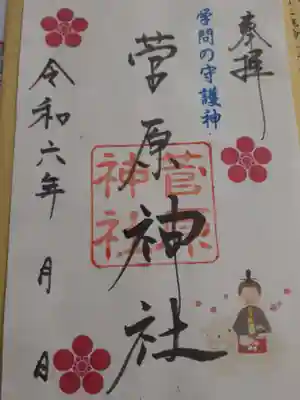 奉拝
学問の守護神
菅原神社
菅原
神社
令和六年 月 日